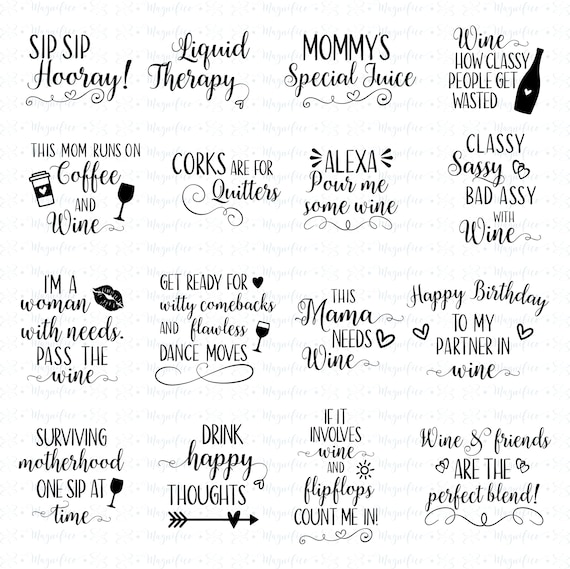 SIP SIP
Hooray!
Liquid
Therapy
MOMMY'S
Special Juice
Wine
HOW CLASSY
PEOPLE GET
WASTED
THIS MOM RUNS ON
Coffee
AND
Wine
CORKS ARE FOR
Quitters
ALEXA
Pour me
some wine
CLASSY
Sassy
BAD ASSY
WITH
Wine
I'M A
woman
with needs.
PASS THE
wine
GET READY FOR
witty comebacks
AND flawless
DANCE MOVES
THIS
Mama
NEEDS
Wine
Happy Birthday
TO MY
PARTNER IN
wine
SURVIVING
motherhood
ONE SIP AT
time
DRINK
happy
THOUGHTS
IF IT
INVOLVES
wine
AND
flipflops
COUNT ME IN!
Wine & friends
ARE THE
perfect blend!